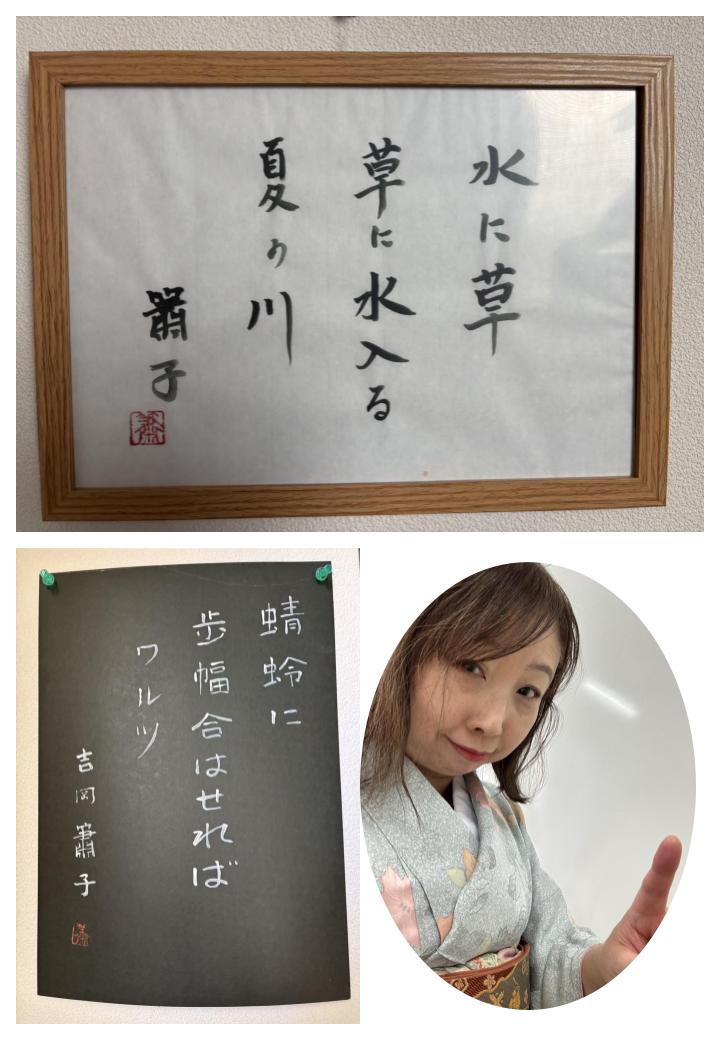 水に草
草に水入る
夏の川
簫子
蜻蛉に
歩幅合はせれば
ワルツ
吉岡簫子